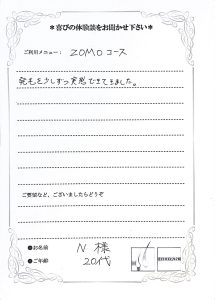 ＊喜びの体験談をお聞かせ下さい＊
ご利用メニュー： ZOMOコース
発毛を少しずつ実感できてきました。
ご要望など、ございましたらどうぞ
●お名前 N 様
●ご年齢 20代